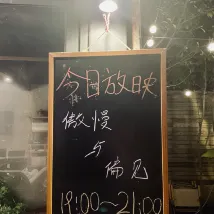 今日放映
傲慢
与
偏见
19:00~21:00